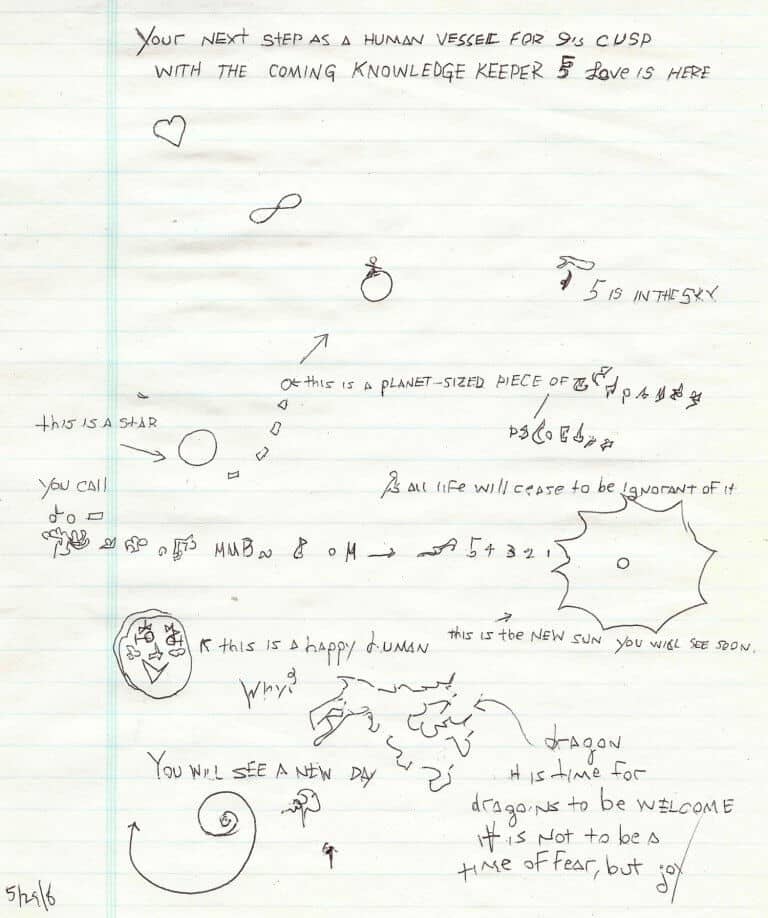 Your NEXT STEP AS A HUMAN VESSEL FOR 9's CUSP
WITH THE COMING KNOWLEDGE KEEPER 5 Love IS HERE
5 IS IN THE SKY
this IS A PLANET-SIZED PIECE OF
this IS A STAR
YOU CAll
As All life will cease to be ignorant of it
MMB 8 O M → 5 4 3 2 1
this is A happy human
this is the NEW SUN YOU WILL SEE SOON.
Why?
YOU WILL SEE A NEW DAY
dragon
It is time for
dragons to be WELCOME
It is Not to be a
time of fear, but joy